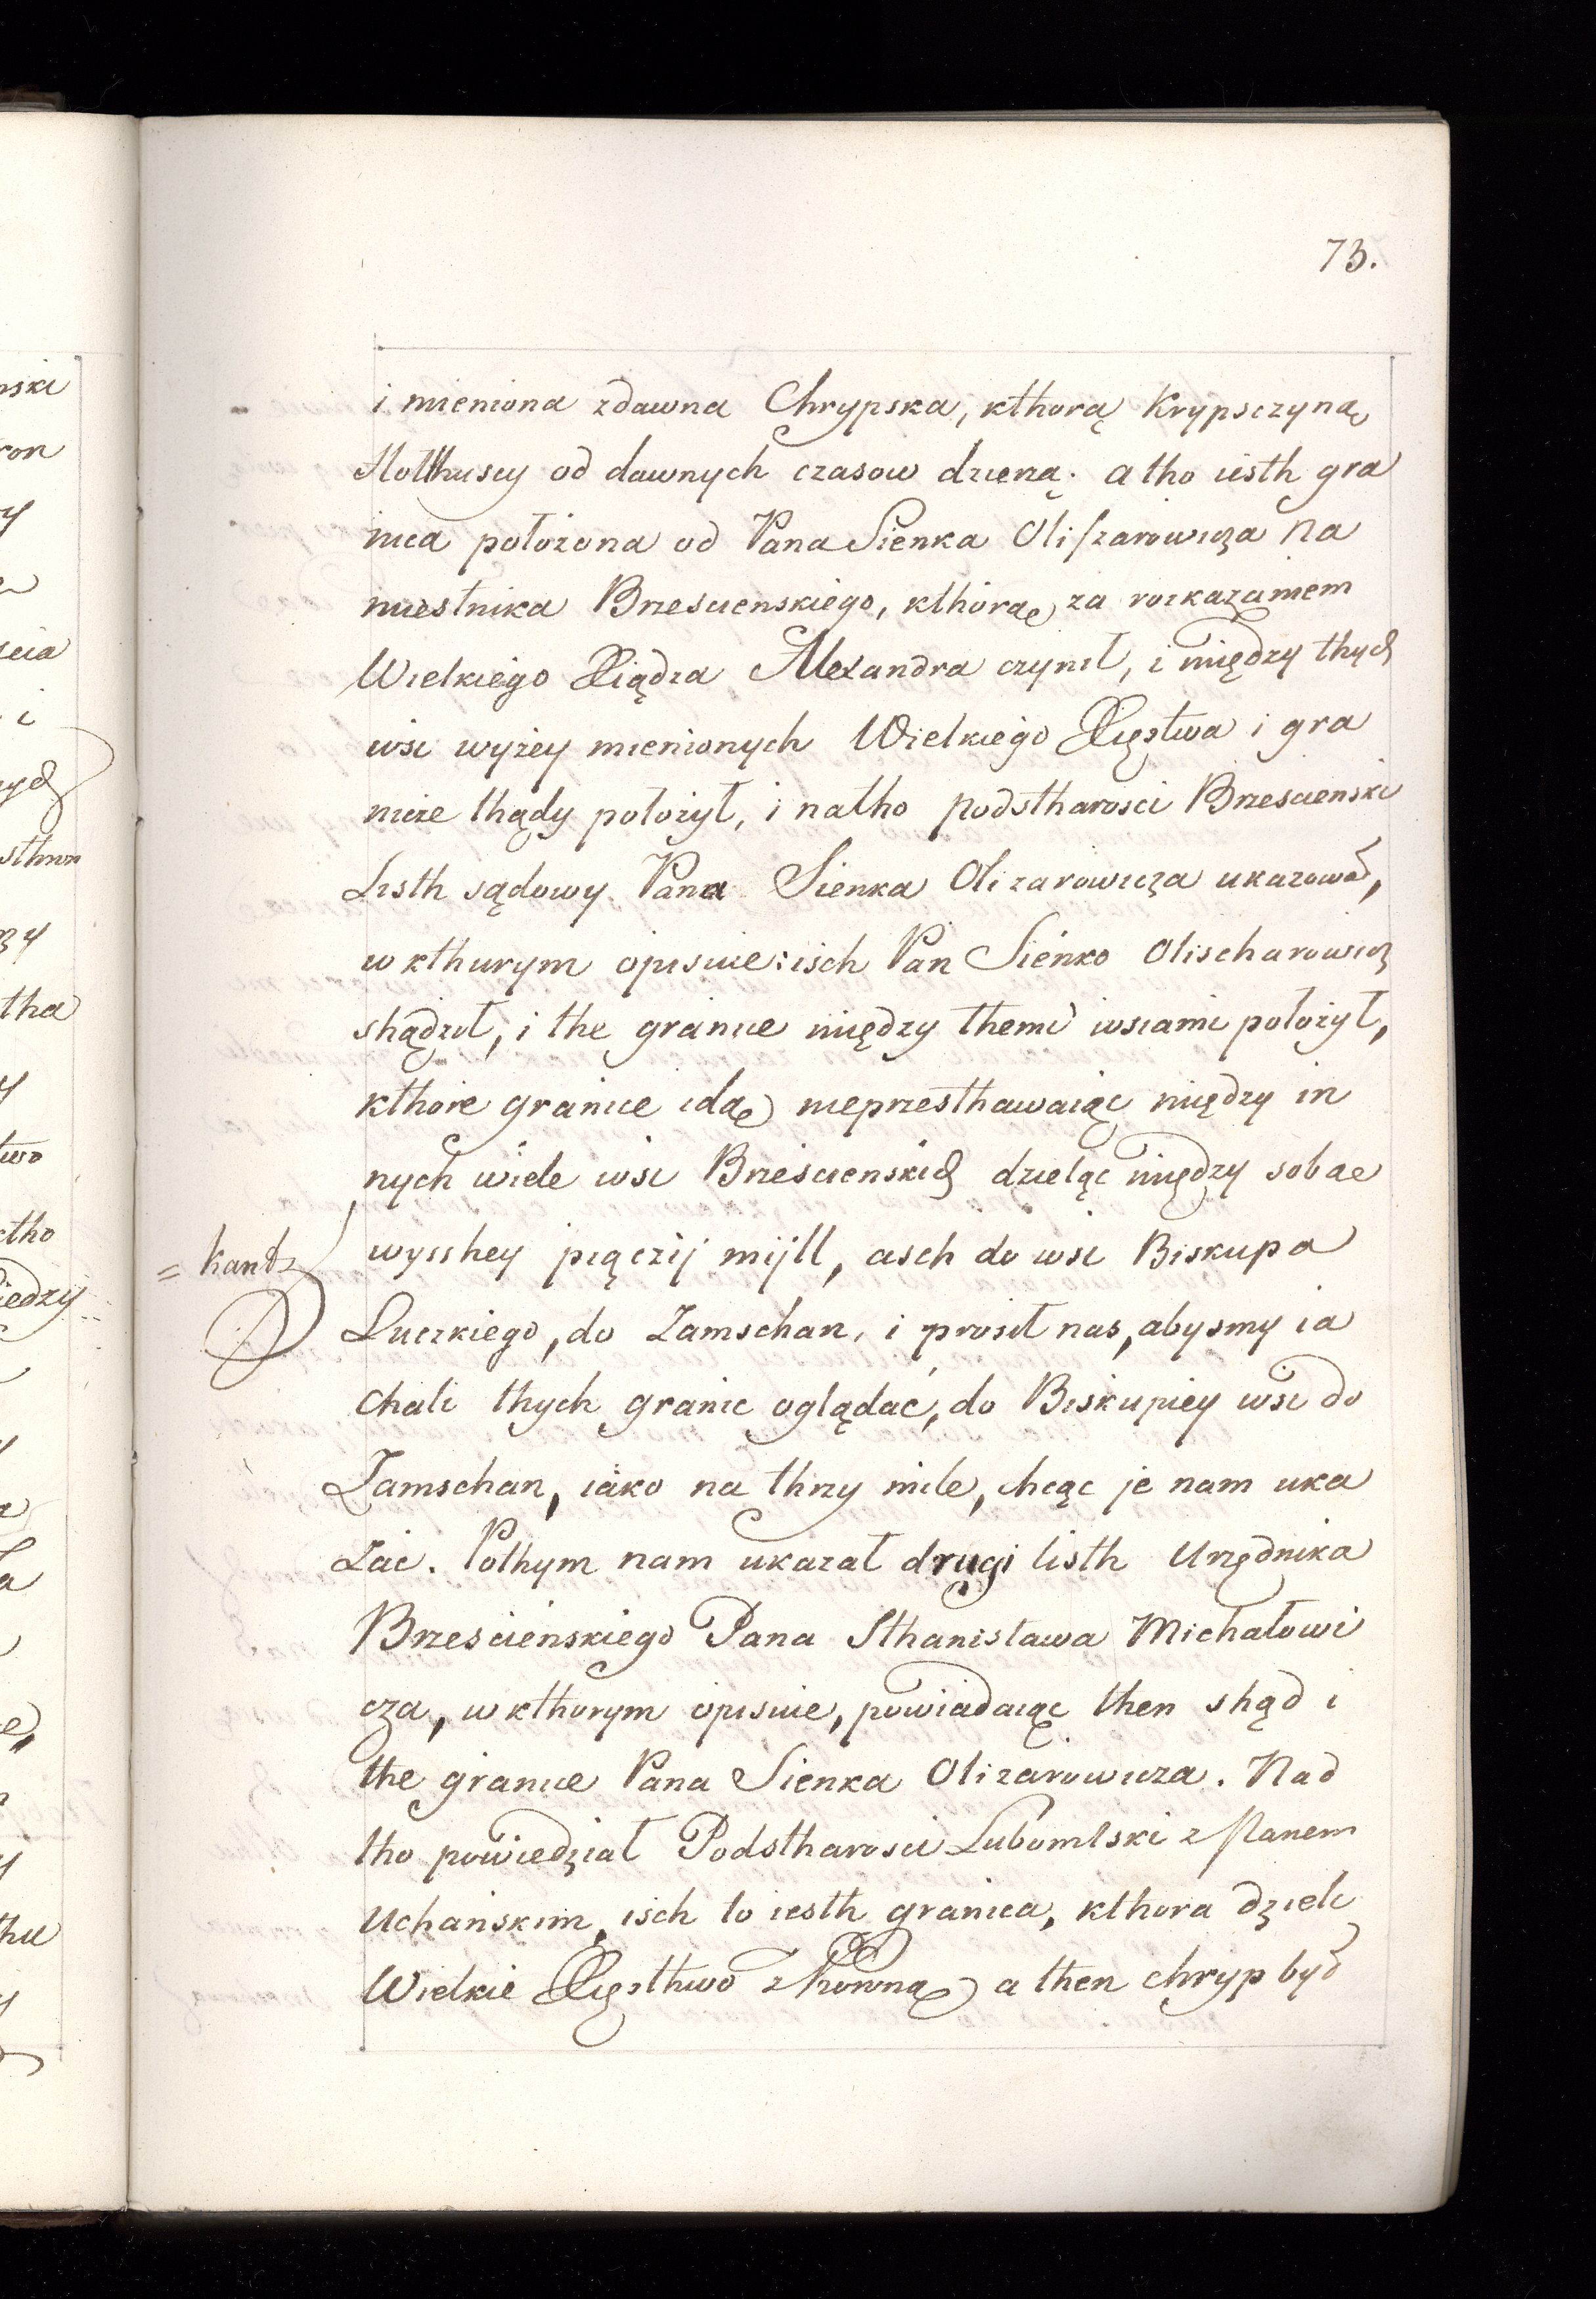 73.
i mieniona zdawna Chrypska, kthorą Krypsczyną
Holthuscy od dawnych czasow dzierzą. a tho iesth gra
nica położona od Pana Sienka Oliszarowicza Na
miestnika Brzescienskiego, kthorą za rozkazaniem
Wielkiego Xiądza Alexandra czynił, i między thych
wsi wyżey mienionych Wielkiego Xięstwa i gra
nicze thądy położył, i natho podstharosci Brzescienski
Listh sądowy Pana Sienka Olizarowicza ukazował,
w kthurym opisuie: isch Pan Sieńko Olischarowicz
shądził, i the granice między themi wsiami położył,
kthore granice idą nieprzesthawaiąc między in
nych wiele wsi Brześcienskich dzieląc między sobae
wysshey pięczij mijll, asch do wsi Biskupa
Luczkiego, do Zamschan, i prosił nas, abysmy ia
chali thych granic oglądać, do Biskupiey wsi do
Zamschan, iako na thrzy mile, chcąc je nam uka
zac. Pothym nam ukazał drugi listh Urzędnika
Brzescieńskiego Pana Sthanisława Michałowi
cza, w kthorym opisuie, powiadaiąc then shąd i
the granice Pana Sienka Olizarowicza. Nad
tho powiedział Podstharosci Lubomlski z Panem
Uchańskim, isch to iesth granica, kthora dzieli
Wielkie Xięsthwo z Koroną a then chryp był